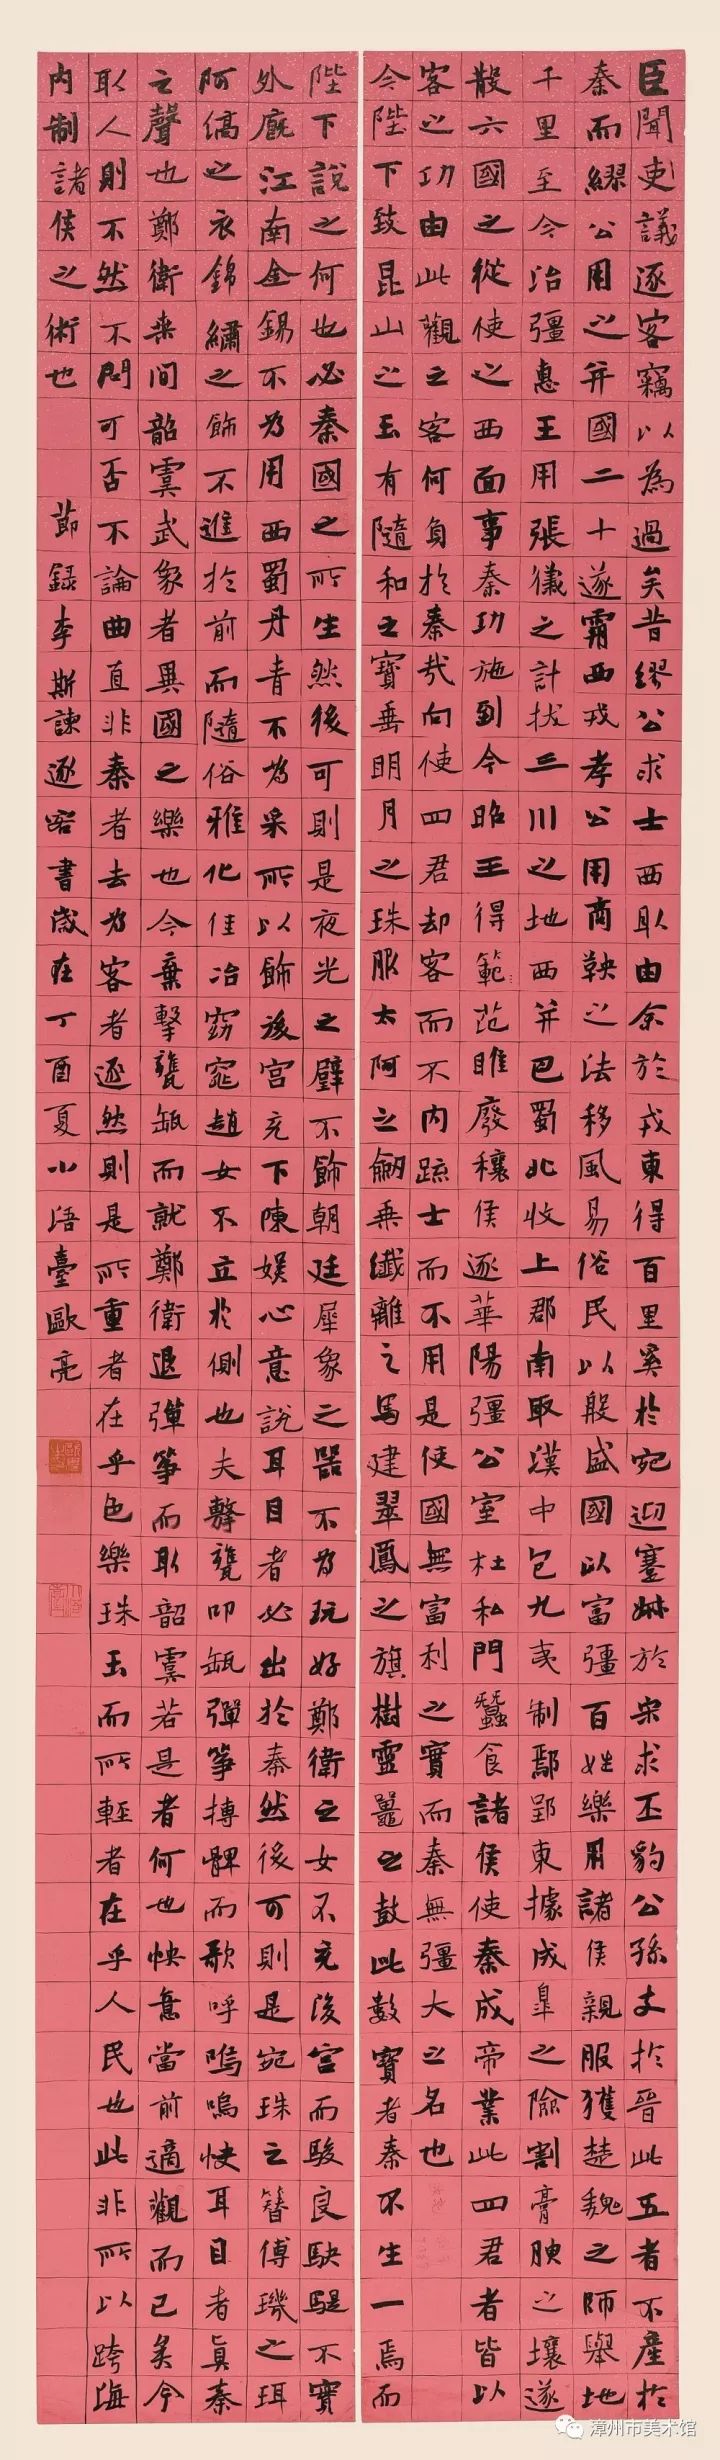 臣聞吏議逐客竊以為過矣昔繆公求士西取由余於戎東得百里奚於宛迎蹇叔於宋求丕豹公孫支於晉此五者不產於
秦而繆公用之并國二十遂霸西戎孝公用商鞅之法移風易俗民以殷盛國以富彊百姓樂用諸侯親服獲楚魏之師舉地
千里至今治彊惠王用張儀之計拔三川之地西并巴蜀北收上郡南取漢中包九夷制鄢郢東據成皋之險割膏腴之壤遂
散六國之從使之西面事秦功施到今昭王得範范雎廢穰侯逐華陽彊公室杜私門蠶食諸侯使秦成帝業此四君者皆以
客之功由此觀之客何負於秦哉向使四君却客而不內疏士而不用是使國無富利之實而秦無彊大之名也
今陛下致昆山之玉有隨和之寶垂明月之珠服太阿之劒乘纖離之馬建翠鳳之旗樹靈鼉之鼓此數寶者秦不生一焉而
陛下說之何也必秦國之所生然後可則是夜光之璧不飾朝廷犀象之器不為玩好鄭衛之女不充後宮而駿良駃騠不實
外廄江南金錫不為用西蜀丹青不為采所以飾後宮充下陳娛心意說耳目者必出於秦然後可則是宛珠之簪傅璣之珥
阿縞之衣錦繡之飾不進於前而隨俗雅化佳冶窈窕趙女不立於側也夫擊甕叩缻彈箏搏髀而歌呼嗚嗚快耳目者真秦
之聲也鄭衛桑間韶虞武象者異國之樂也今棄擊甕缻而就鄭衛退彈箏而取韶虞若是者何也快意當前適觀而已矣今
取人則不然不問可否不論曲直非秦者去為客者逐然則是所重者在乎色樂珠玉而所輕者在乎人民也此非所以跨海
內制諸侯之術也 節録李斯諫逐客書歲在丁酉夏小浯臺歐亮
漳州市美术馆